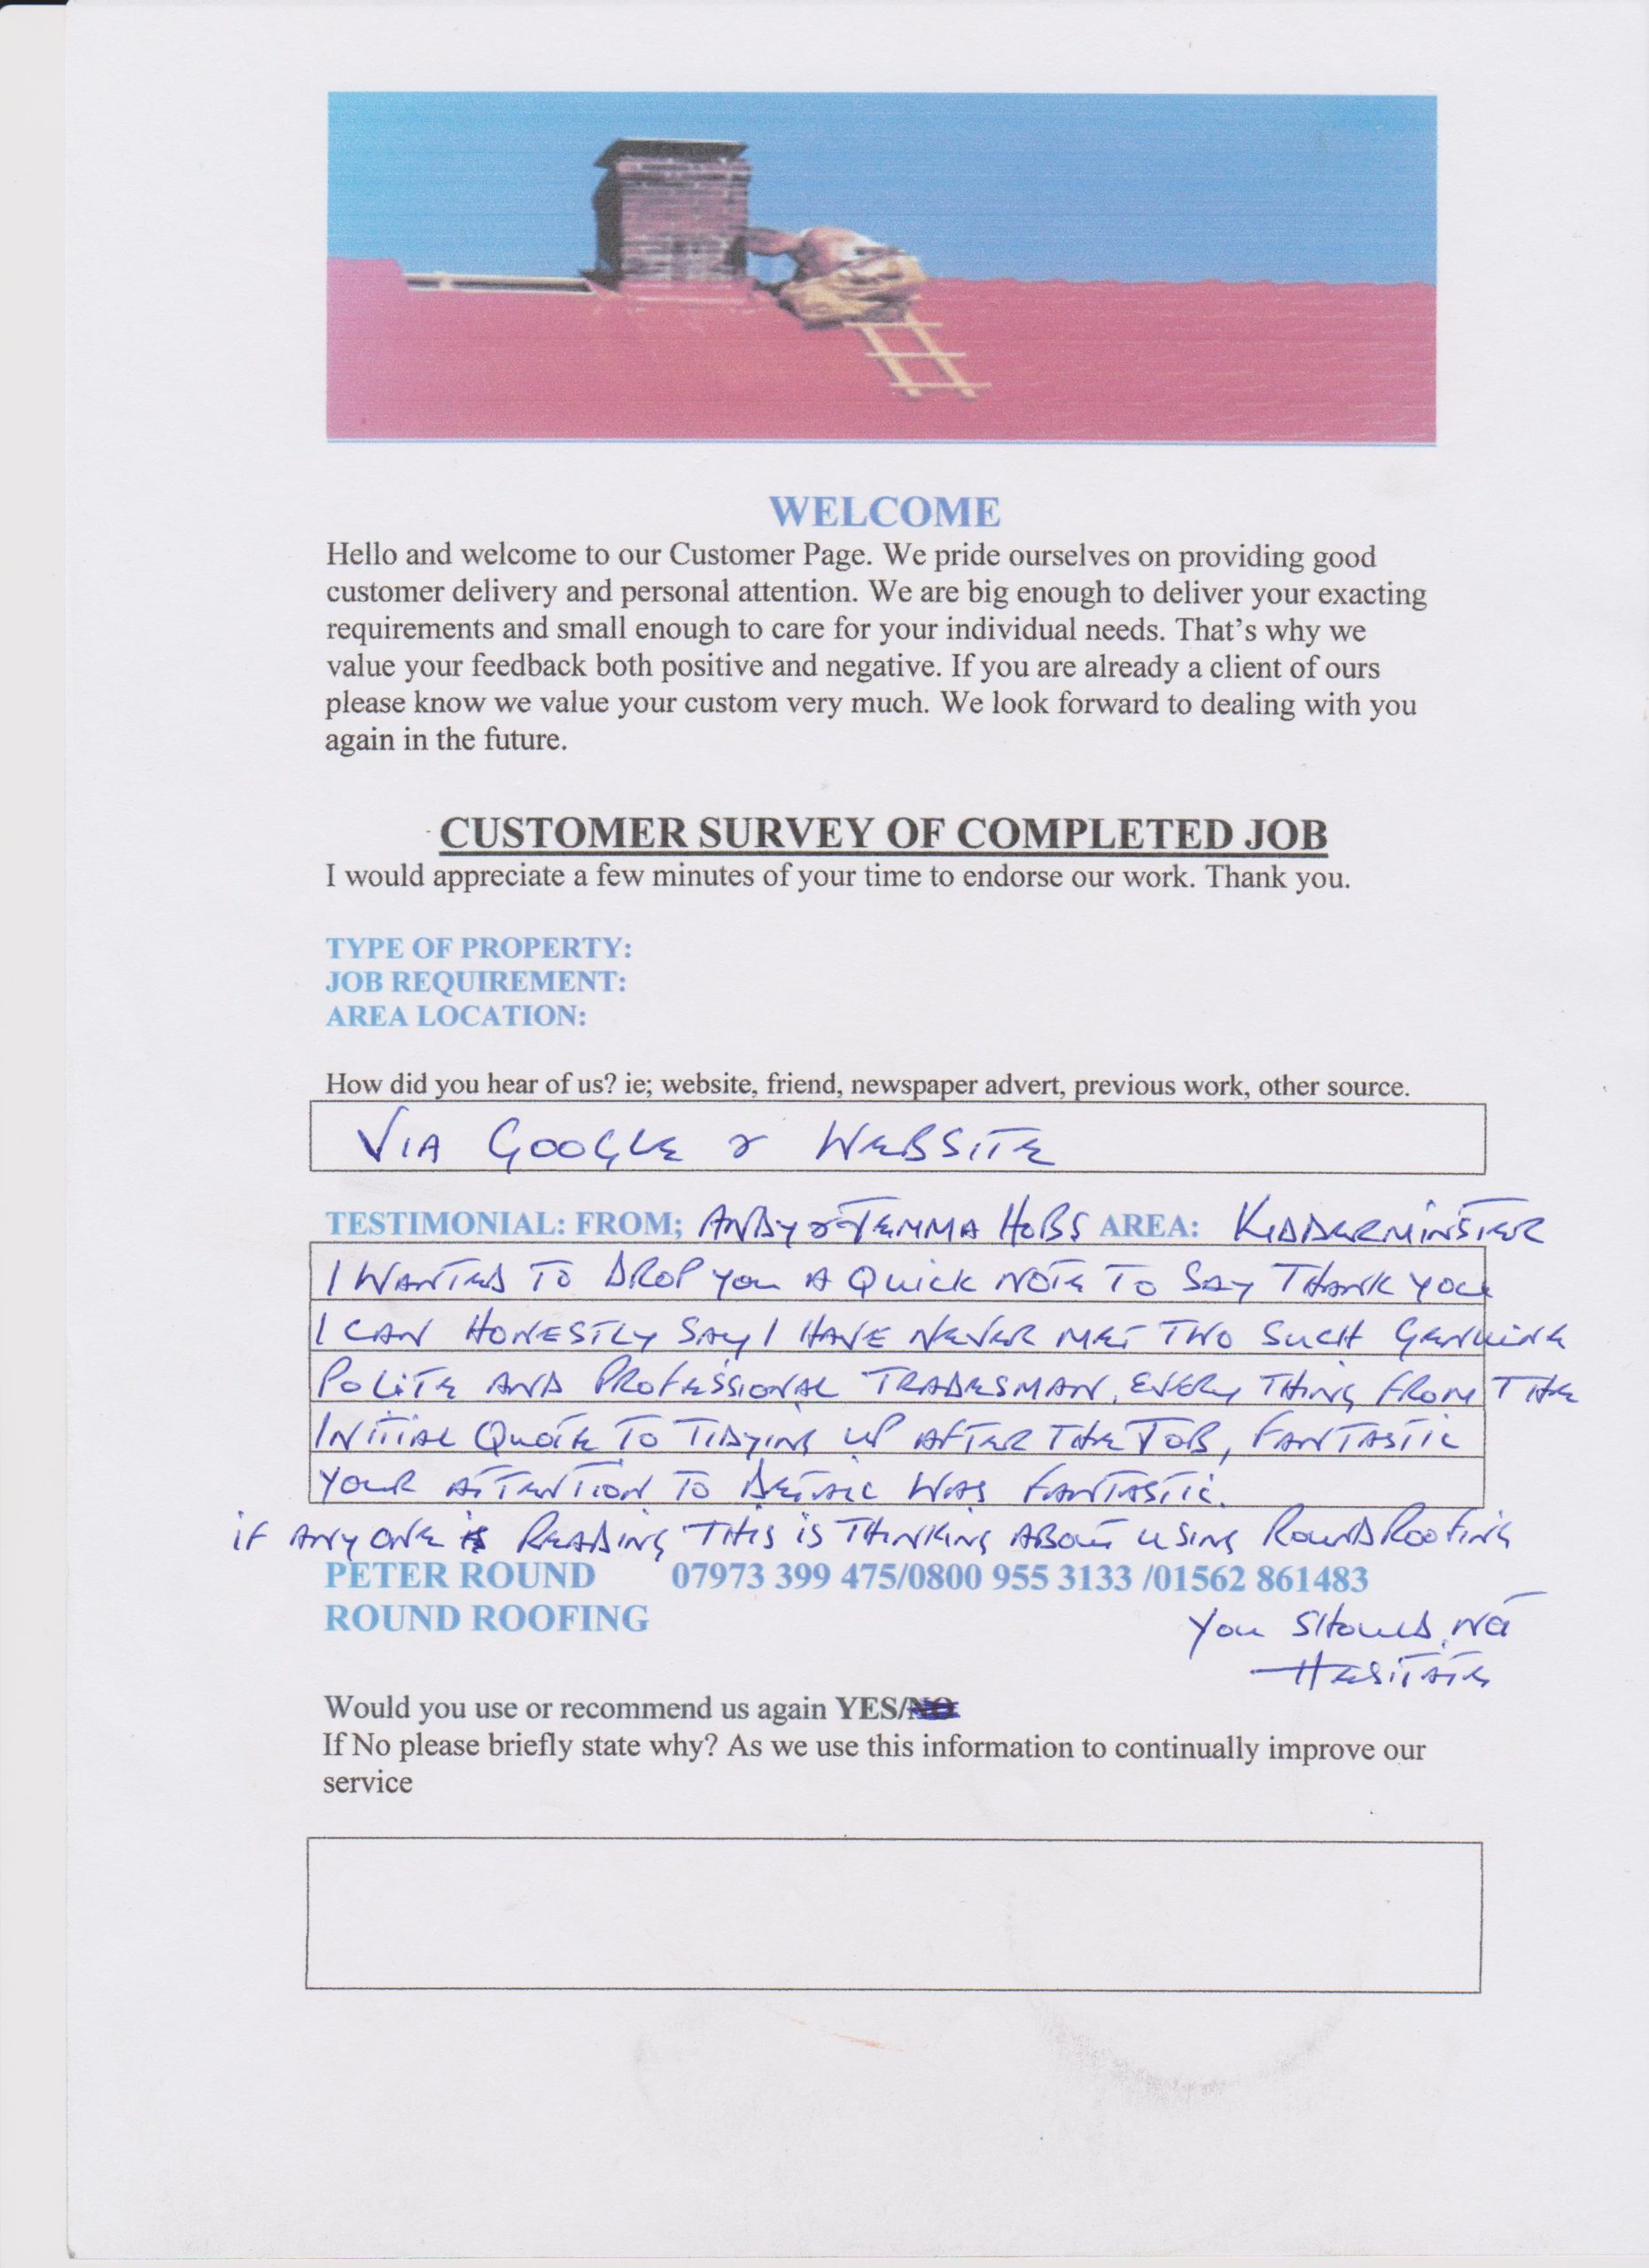 WELCOME
Hello and welcome to our Customer Page. We pride ourselves on providing good
customer delivery and personal attention. We are big enough to deliver your exacting
requirements and small enough to care for your individual needs. That's why we
value your feedback both positive and negative. If you are already a client of ours
please know we value your custom very much. We look forward to dealing with you
again in the future.
CUSTOMER SURVEY OF COMPLETED JOB
I would appreciate a few minutes of your time to endorse our work. Thank you.
TYPE OF PROPERTY:
JOB REQUIREMENT:
AREA LOCATION:
How did you hear of us? ie; website, friend, newspaper advert, previous work, other source.
VIA GOOGLE & WEBSITE
TESTIMONIAL: FROM; ANDY & JEMMA HOBS AREA: KIDDERMINSTER
I WANTED TO DROP YOU A QUICK NOTE TO SAY THANK YOU
I CAN HONESTLY SAY I HAVE NEVER MET TWO SUCH GENUINE
POLITE AND PROFESSIONAL TRADESMAN. EVERY THING FROM THE
INITIAL QUOTE TO TIDYING UP AFTER THE JOB, FANTASTIC
YOUR ATTENTION TO DETAIL WAS FANTASTIC.
IF ANYONE IS READING THIS IS THINKING ABOUT USING ROUND ROOFING
PETER ROUND 07973 399 475/0800 955 3133 /01562 861483
ROUND ROOFING
YOU SHOULD NOT
HESITATE
Would you use or recommend us again YES/NO
If No please briefly state why? As we use this information to continually improve our
service